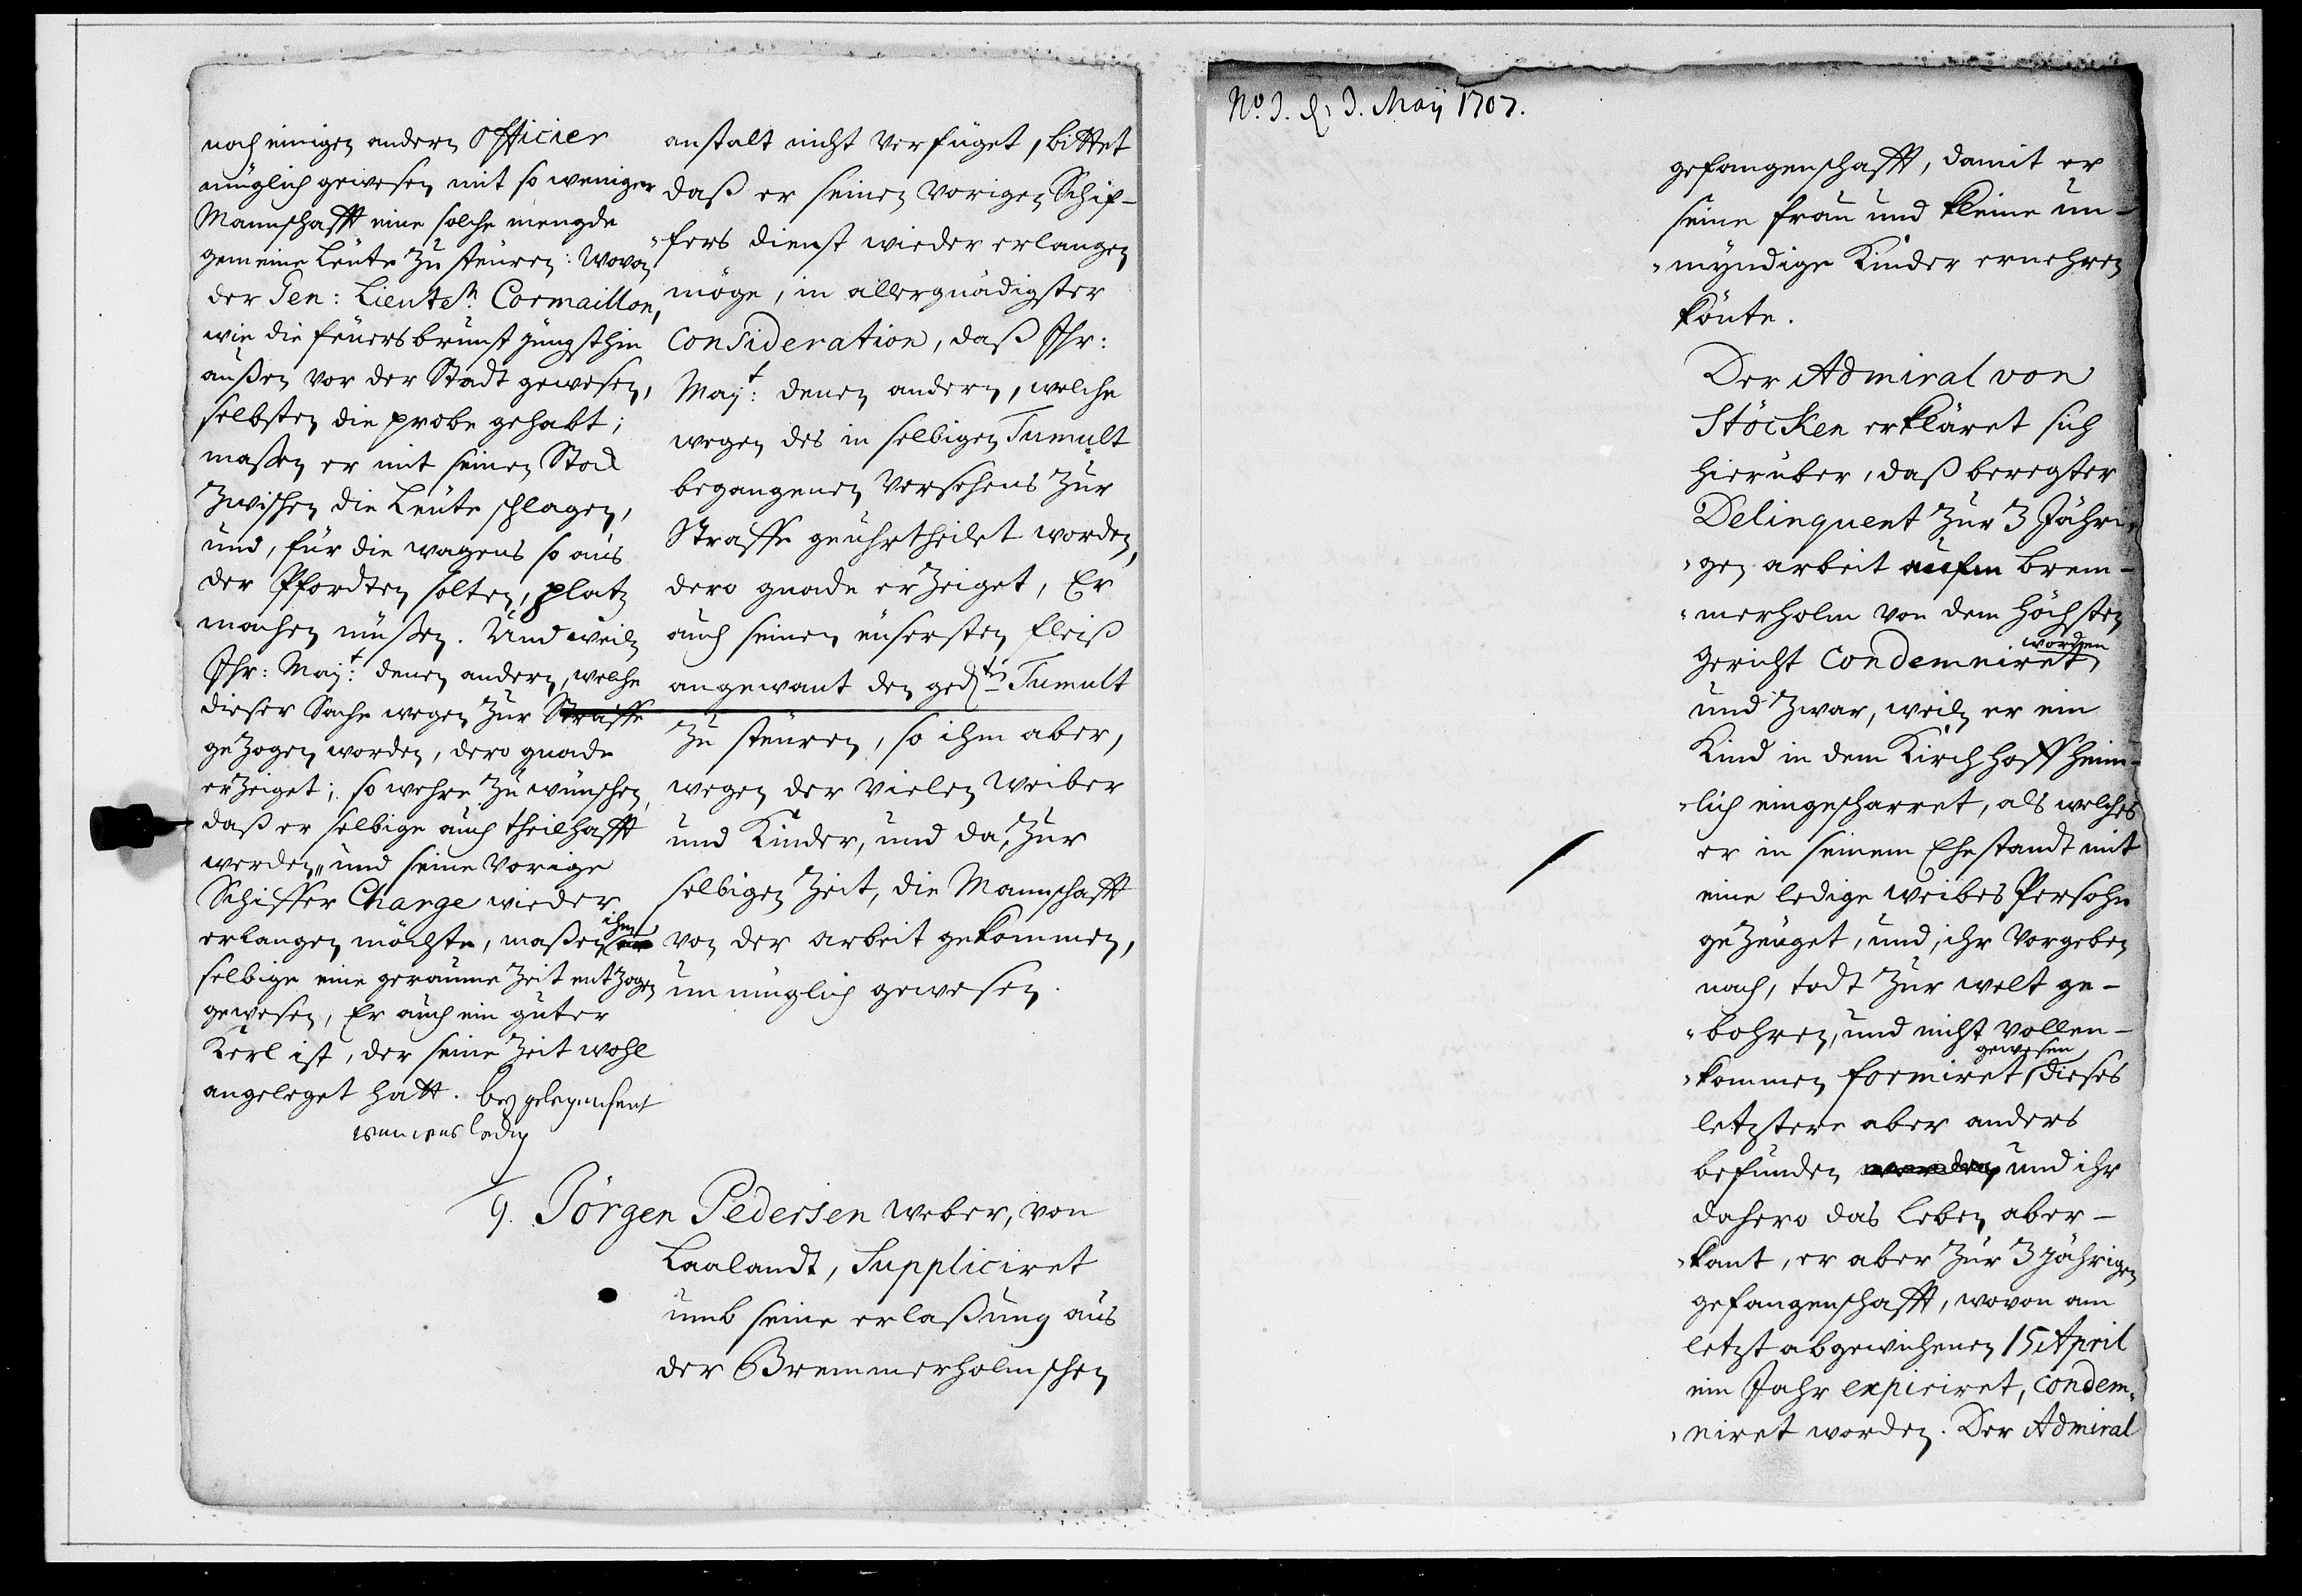 noch einigen andern Officier
müglich gewesen mit so weniger
Mannschafft eine solche mengde
gemeine Leute zu steuren: Wovon
der Gen: Lieuten: Cormaillon,
wie die feuersbrunst jüngsthin
außen vor der Stadt gewesen,
selbsten die probe gehabt;
maßen er mit seinen Stock
zwischen die Leute schlagen,
und, für die wagens so aus
der Pfordten solten, platz
machen müßen. Und weiln
Ihr: Maj:t denen andern, welche
dieser Sache wegen zur Straffe
gezogen worden, dero gnade
erzeiget; so wehre zu wünschen,
daß er selbige auch theilhafft
werden, und seine vorige
Schiffer Charge wieder
erlangen möchte, maßen ihm
selbige eine geraume Zeit entzogen
gewesen, Er auch ein guter
Kerl ist, der seine Zeit wohl
angeleget hatt. bey gelegenheit
wan was ledig
anstalt nicht verfüget, bittet
daß er seinen vorigen Schif-
fers dienst wieder erlangen
möge, in allergnädigster
Consideration, daß Ihr:
Maj:t denen andern, welche
wegen des in selbigen Tumult
begangenen Versehens zur
Straffe geuhrtheilet worden,
dero gnade erzeiget, Er
auch seinen eusersten fleiß
angewant den gedten Tumult
zu steuren, so ihm aber,
wegen der vielen Weiber
und Kinder, und da, zur
selbigen Zeit, die Mannschafft
von der arbeit gekommen,
unmüglich gewesen.
9. Jörgen Pedersen Weber, von
Laalandt, Suppliciret
umb seine erlaßung aus
der Bremmerholmschen
No. 3. d. 3. Maÿ 1707.
gefangenschafft, damit er
seine frau und kleine un-
mÿndige Kinder ernehren
könte.
Der Admiral von
Stöcken erkläret sich
hierüber, daß beregter
Delinquent zur 3 Jähri-
gen arbeit aufm Brem-
merholm von dem höchsten
worden
gericht Condemniret
und zwar, weiln er ein
Kind in dem Kirchhoff heim-
lich eingescharret, als welches
er in seinem Ehestandt mit
eine ledige weibes Persohn
gezeuget, und, ihr vorgeben
nach, todt zur welt ge-
bohren, und nicht vollen-
gewesen
kommen formiret, dieses
letztere aber anders
befunden worden, und ihr
dahero das Leben aber-
kant, er aber zur 3 jährigen
gefangenschafft, wovon am
letzt abgewichenen 15 April
ein Jahr expiriret, condem-
niret worden. Der Admiral